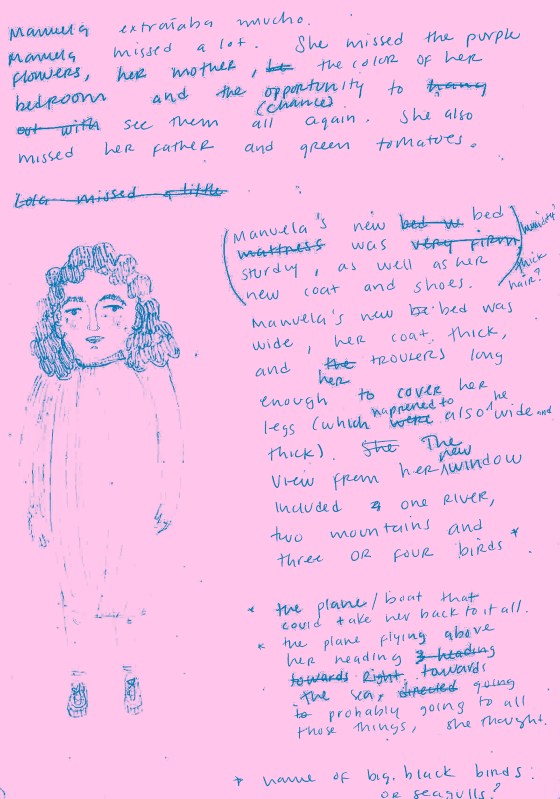 Manuela extrañaba mucho.
Manuela missed a lot. She missed the purple
flowers, her mother, be the color of her
bedroom and the opportunity to hang
(chance)
out with see them all again. She also
missed her father and green tomatoes.
Lola missed a little
(Manuela's new bed w bed
mattress was very firm
sturdy, as well as her
new coat and shoes.)
thick
hair?
Manuela's new be bed was
wide, her coat thick,
and the trousers long
her
enough to cover her
happened to be
legs (which were also wide and
thick). She The
new
view from her window
included a one river,
two mountains and
three or four birds *
* the plane/boat that
could take her back to it all.
* the plane flying above
her heading heading
towards right towards
the sea, directed going
to probably going to all
those things, she thought.
* name of big black birds:
or seagulls?